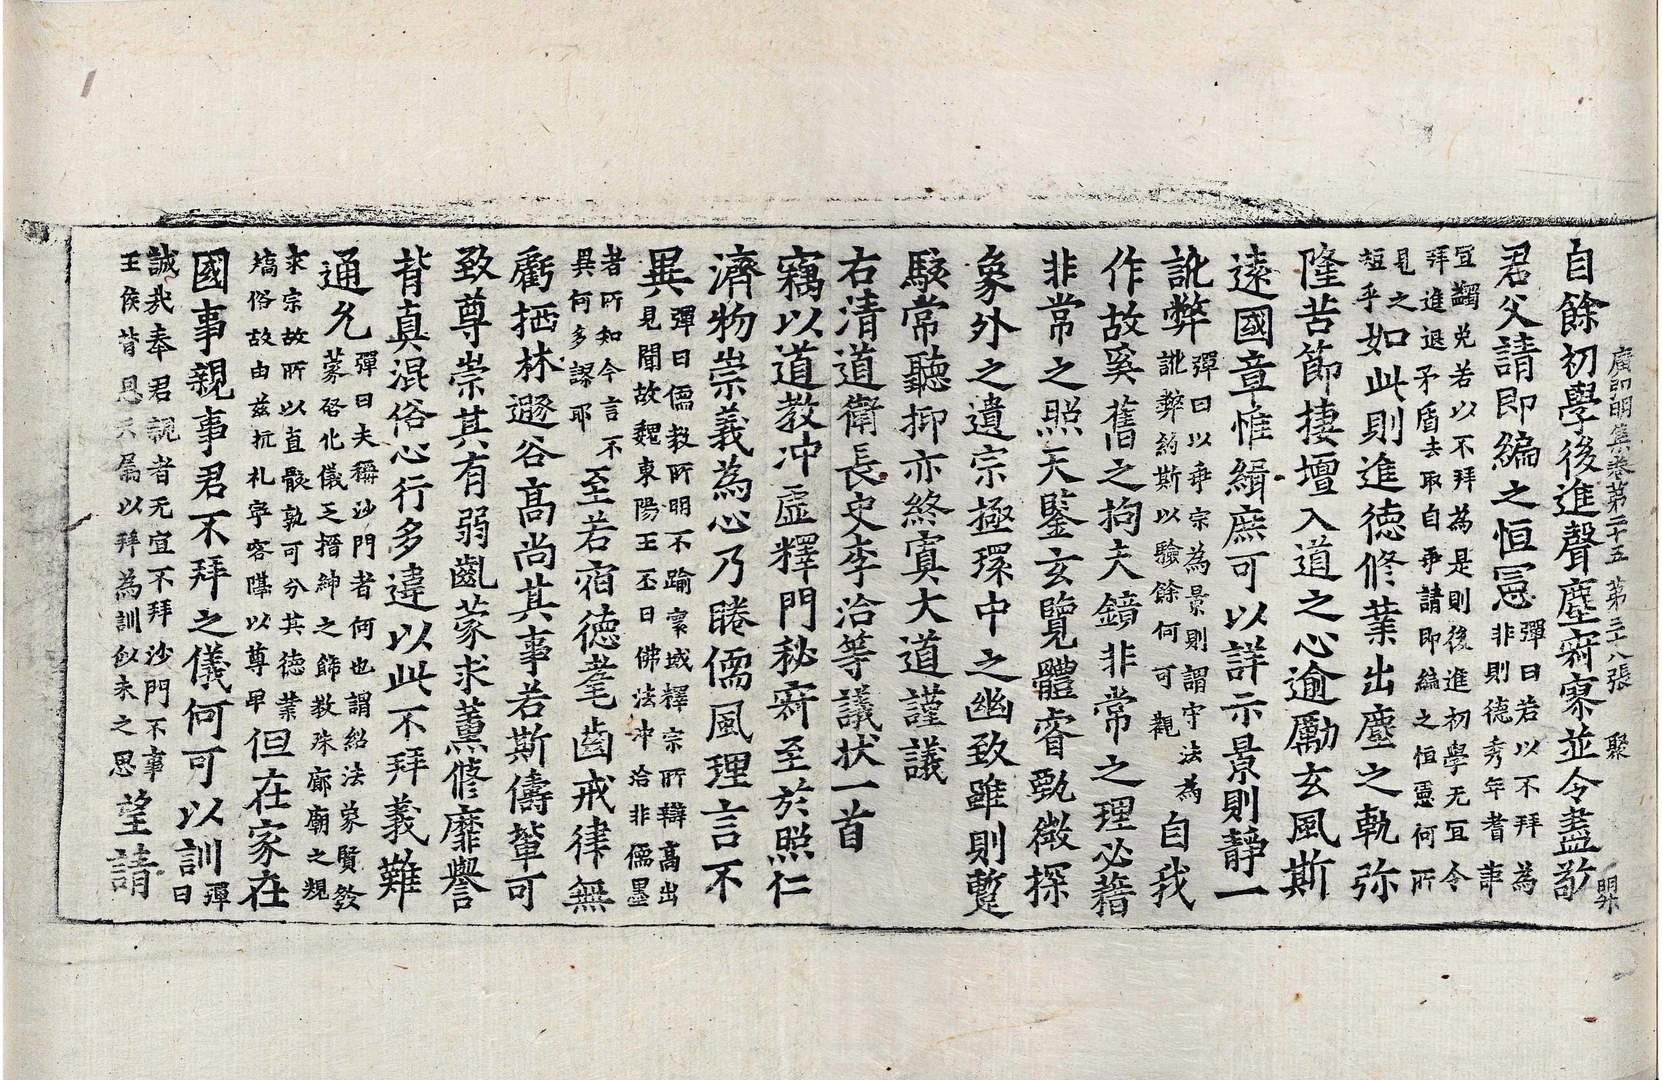 廣弘明集卷第二十五 第三十八張 聚
自餘初學後進聲塵寂寞並令盡敬
君父請即編之恒憲彈曰若以不拜為非則德秀年耆詎
宜蠲免若以不拜為是則後進初學无宜令拜進退矛盾去取自爭請即編之恒憲何所
見之短乎如此則進德修業出塵之軌弥
隆苦節棲壇入道之心逾勵玄風斯
遠國章惟緝庶可以詳示景則靜一
訛弊彈曰以乖宗為景則謂守法為訛弊約斯以驗餘何可觀自我
作故奚舊之拘夫鏡非常之理必藉
非常之照天鑒玄覽體睿甄微探
象外之遺宗極環中之幽致雖則蹔
駭常聽抑亦終寘大道謹議
右清道衛長史李洽等議狀一首
竊以道教沖虛釋門秘寂至於照仁
濟物崇義為心乃睠儒風理言不
異彈曰儒教所明不踰寰域釋宗所辯高出見聞故魏東陽王丕曰佛法沖洽非儒墨
者所知今言不異何多謬耶至若宿德耄齒戒律無
虧栖林遯谷高尚其事若斯儔輩可
致尊崇其有弱齓蒙求薰修靡譽
背真混俗心行多違以此不拜義難
通允彈曰夫稱沙門者何也謂紹法象賢發蒙啓化儀乏搢紳之飾教殊廊廟之規
求宗故所以直骸孰可分其德業矯俗故由茲抗礼寧容隔以尊卑但在家在
國事親事君不拜之儀何可以訓彈曰
誠哉奉君親者无宜不拜沙門不事王侯背恩天屬以拜為訓似未之思望請